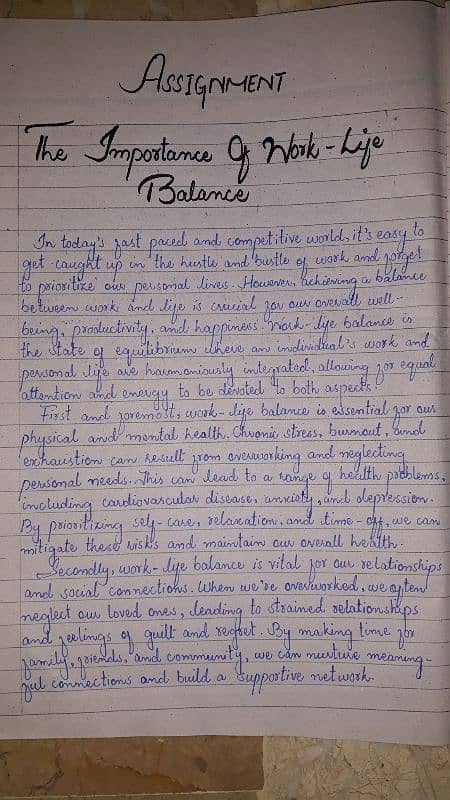 ASSIGNMENT
The Importance Of Work-Life
Balance
In today's fast paced and competitive world, it's easy to
get caught up in the hustle and bustle of work and forget
to prioritize our personal lives. However, achieving a balance
between work and life is crucial for our overall well-
being, productivity, and happiness. Work-life balance is
the state of equilibrium where an individual's work and
personal life are harmoniously integrated, allowing for equal
attention and energy to be devoted to both aspects.
First and foremost, work-life balance is essential for our
physical and mental health. Chronic stress, burnout, and
exhaustion can result from overworking and neglecting
personal needs. This can lead to a range of health problems,
including cardiovascular disease, anxiety, and depression.
By prioritizing self-care, relaxation, and time-off, we can
mitigate these risks and maintain our overall health.
Secondly, work-life balance is vital for our relationships
and social connections. When we're overworked, we often
neglect our loved ones, leading to strained relationships
and feelings of guilt and regret. By making time for
family, friends, and community, we can nurture meaning-
ful connections and build a supportive network.